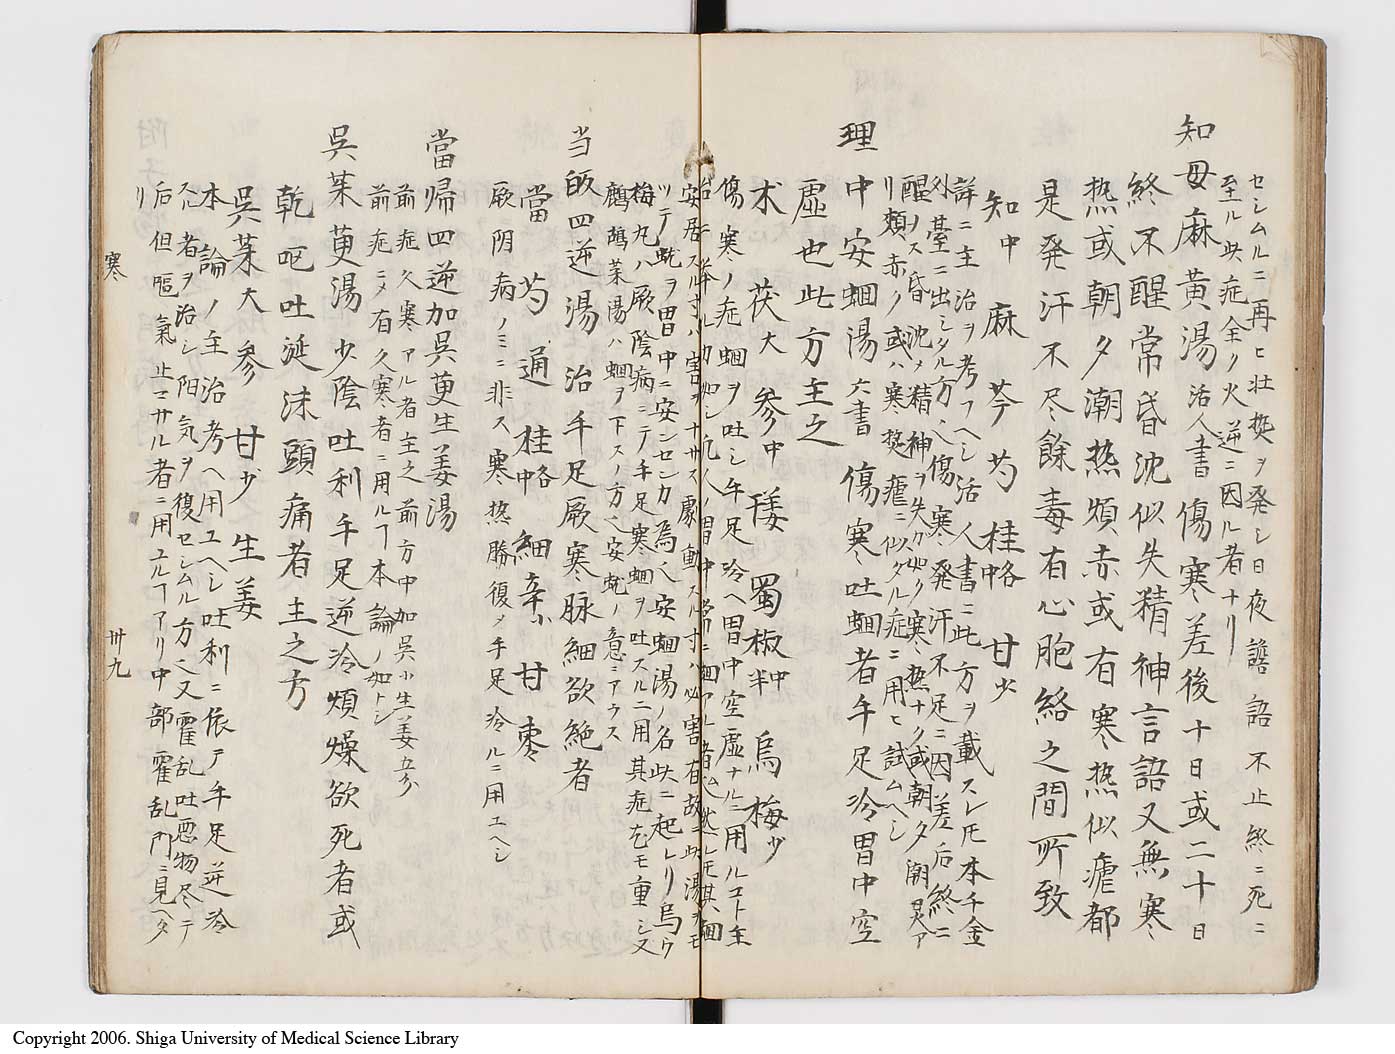 セシムルニ再ヒ壮熱ヲ発シ日夜譫語不止終ニ死ニ
至ル此症全ク火逆ニ因ル者ナリ
知母麻黄湯 活人書 傷寒差後十日或二十日
終不醒常昏沈似失精神言語又無寒
热或朝夕潮热頬赤或有寒热似瘧都
是発汗不尽餘毒有心胞絡之間所致
知中 麻 芩 芍 桂中略 甘少
詳ニ主治ヲ考フヘシ活人書ニ此方ヲ載スレ𪜈本千金
外臺ニ出シタル方ニ傷寒発汗不足ニ因差后終ニ
醒ヲス昏沈メ精神ヲ失カ如ク寒热ナク或朝夕潮热ア
リ類赤ノ或ハ寒热瘧ニ似タル症ニ用ヒ試ムヘシ
理中安蛔湯 六書 傷寒吐蛔者手足冷胃中空
虚也此方主之
朮 茯大 參中 倭 蜀椒中 烏梅少
傷寒ノ症蛔ヲ吐シ手足冷ヘ胃中空虚ナルニ用ルコト主
安居スル寸ハ害ヲナサス劇動スル寸ハ必害有故ニ此湯ヲモ
ツテ蚘ヲ胃中ニ安ンセシカ為也安蛔湯ノ名此ニ起レリ烏ウ
梅丸ハ厥陰病ニテ手足寒蛔ヲ吐スルニ用其症尤モ重シ又
鷓鴣菜湯ハ蛔ヲ下スノ方也安蚘ノ意ニアラス
当皈四逆湯 治手足厥寒脉細欲絶者
當 芍 通 桂中略 細辛小 甘 棗
厥阴病ノミニ非ス寒热勝復メ手足冷ルニ用エヘシ
當帰四逆加呉茰生姜湯
前症久寒アル者主之前方中加呉小生姜五分
前症ニメ有久寒者ニ用ルコト本論ノ如トシ
呉茱茰湯 少陰吐利手足逆冷煩燥欲死者或
乾呕吐涎沫頭痛者主之方
呉茱大 參 甘少 生姜
本論ノ主治考ヘ用エヘシ吐利ニ依テ手足逆冷
スル者ヲ治シ阳気ヲ復セシムル方也又霍乱吐悪物尽テ
后但嘔氣止マサル者ニ用ユルコトアリ中部霍乱門ニ見ヘタ
リ
寒
卅九
Copyright 2006. Shiga University of Medical Science Library